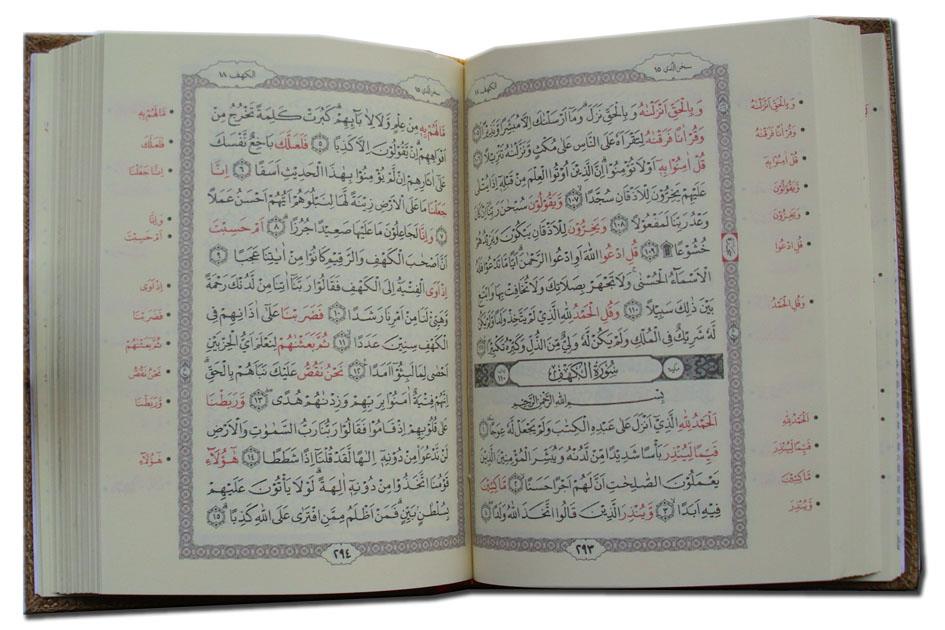 سبحن الذى ١٥
وَبِالْحَقِّ اَنْزَلْنٰهُ وَبِالْحَقِّ نَزَلَ وَمَٓا اَرْسَلْنَاكَ اِلَّا مُبَشِّرًا وَنَذِيرًا
وَقُرْاٰنًا فَرَقْنٰهُ لِتَقْرَاَهُ عَلَى النَّاسِ عَلٰى مُكْثٍ وَنَزَّلْنٰهُ تَنْزِيلًا
قُلْ اٰمِنُوا بِهِ اَوْ لَا تُؤْمِنُوا اِنَّ الَّذِينَ اُوتُوا الْعِلْمَ مِنْ قَبْلِهِ اِذَا يُتْلٰى
عَلَيْهِمْ يَخِرُّونَ لِلْاَذْقَانِ سُجَّدًا ﴿١٠٧﴾ وَيَقُولُونَ سُبْحٰنَ رَبِّنَا اِنْ كَانَ
وَعْدُ رَبِّنَا لَمَفْعُولًا ﴿١٠٨﴾ وَيَخِرُّونَ لِلْاَذْقَانِ يَبْكُونَ وَيَزِيدُهُمْ
خُشُوعًا ۩ ﴿١٠٩﴾ قُلِ ادْعُوا اللّٰهَ اَوِ ادْعُوا الرَّحْمٰنَ اَيًّا مَّا تَدْعُوا فَلَهُ
الْاَسْمَٓاءُ الْحُسْنٰى وَلَا تَجْهَرْ بِصَلَاتِكَ وَلَا تُخَافِتْ بِهَا وَابْتَغِ
بَيْنَ ذٰلِكَ سَبِيلًا ﴿١١٠﴾ وَقُلِ الْحَمْدُ لِلّٰهِ الَّذِي لَمْ يَتَّخِذْ وَلَدًا وَلَمْ يَكُنْ
لَهُ شَرِيكٌ فِي الْمُلْكِ وَلَمْ يَكُنْ لَهُ وَلِيٌّ مِّنَ الذُّلِّ وَكَبِّرْهُ تَكْبِيرًا
سُورَةُ الْكَهْفِ
بِسْمِ اللّٰهِ الرَّحْمٰنِ الرَّحِيمِ
اَلْحَمْدُ لِلّٰهِ الَّذِي اَنْزَلَ عَلٰى عَبْدِهِ الْكِتٰبَ وَلَمْ يَجْعَلْ لَهُ عِوَجًا ﴿١﴾
قَيِّمًا لِيُنْذِرَ بَأْسًا شَدِيدًا مِّنْ لَدُنْهُ وَيُبَشِّرَ الْمُؤْمِنِينَ الَّذِينَ
يَعْمَلُونَ الصّٰلِحٰتِ اَنَّ لَهُمْ اَجْرًا حَسَنًا ﴿٢﴾ مَاكِثِينَ
فِيهِ اَبَدًا ﴿٣﴾ وَيُنْذِرَ الَّذِينَ قَالُوا اتَّخَذَ اللّٰهُ وَلَدًا ﴿٤﴾
٢٩٣
وَبِالْحَقِّ اَنْزَلْنٰهُ
وَقُرْاٰنًا فَرَقْنٰهُ
قُلْ اٰمِنُوا بِهِ
وَيَقُولُونَ
وَيَخِرُّونَ
قُلِ ادْعُوا
وَقُلِ الْحَمْدُ
اَلْحَمْدُ لِلّٰهِ
قَيِّمًا لِيُنْذِرَ
مَاكِثِينَ
وَيُنْذِرَ
الكهف ١٨
سبحن الذى ١٥
مَا لَهُمْ بِهِ مِنْ عِلْمٍ وَلَا لِاٰبَٓائِهِمْ كَبُرَتْ كَلِمَةً تَخْرُجُ مِنْ
اَفْوَاهِهِمْ اِنْ يَقُولُونَ اِلَّا كَذِبًا ﴿٥﴾ فَلَعَلَّكَ بَاخِعٌ نَّفْسَكَ
عَلٰٓى اٰثَارِهِمْ اِنْ لَمْ يُؤْمِنُوا بِهٰذَا الْحَدِيثِ اَسَفًا ﴿٦﴾ اِنَّا
جَعَلْنَا مَا عَلَى الْاَرْضِ زِينَةً لَّهَا لِنَبْلُوَهُمْ اَيُّهُمْ اَحْسَنُ عَمَلًا
﴿٧﴾ وَاِنَّا لَجَاعِلُونَ مَا عَلَيْهَا صَعِيدًا جُرُزًا ﴿٨﴾ اَمْ حَسِبْتَ
اَنَّ اَصْحٰبَ الْكَهْفِ وَالرَّقِيمِ كَانُوا مِنْ اٰيٰتِنَا عَجَبًا ﴿٩﴾
اِذْ اَوَى الْفِتْيَةُ اِلَى الْكَهْفِ فَقَالُوا رَبَّنَٓا اٰتِنَا مِنْ لَدُنْكَ رَحْمَةً
وَهَيِّئْ لَنَا مِنْ اَمْرِنَا رَشَدًا ﴿١٠﴾ فَضَرَبْنَا عَلٰٓى اٰذَانِهِمْ فِي
الْكَهْفِ سِنِينَ عَدَدًا ﴿١١﴾ ثُمَّ بَعَثْنٰهُمْ لِنَعْلَمَ اَيُّ الْحِزْبَيْنِ
اَحْصٰى لِمَا لَبِثُٓوا اَمَدًا ﴿١٢﴾ نَحْنُ نَقُصُّ عَلَيْكَ نَبَاَهُمْ بِالْحَقِّ
اِنَّهُمْ فِتْيَةٌ اٰمَنُوا بِرَبِّهِمْ وَزِدْنٰهُمْ هُدًى ﴿١٣﴾ وَرَبَطْنَا
عَلٰى قُلُوبِهِمْ اِذْ قَامُوا فَقَالُوا رَبُّنَا رَبُّ السَّمٰوٰتِ وَالْاَرْضِ
لَنْ نَدْعُوَا مِنْ دُونِهِ اِلٰهًا لَقَدْ قُلْنَٓا اِذًا شَطَطًا ﴿١٤﴾ هٰٓؤُلَٓاءِ
قَوْمُنَا اتَّخَذُوا مِنْ دُونِهِ اٰلِهَةً لَوْلَا يَأْتُونَ عَلَيْهِمْ
بِسُلْطٰنٍ بَيِّنٍ فَمَنْ اَظْلَمُ مِمَّنِ افْتَرٰى عَلَى اللّٰهِ كَذِبًا ﴿١٥﴾
٢٩٤
مَا لَهُمْ بِهِ
فَلَعَلَّكَ
اِنَّا جَعَلْنَا
وَاِنَّا
اَمْ حَسِبْتَ
اِذْ اَوَى
فَضَرَبْنَا
ثُمَّ بَعَثْنٰهُمْ
نَحْنُ نَقُصُّ
وَرَبَطْنَا
هٰٓؤُلَٓاءِ